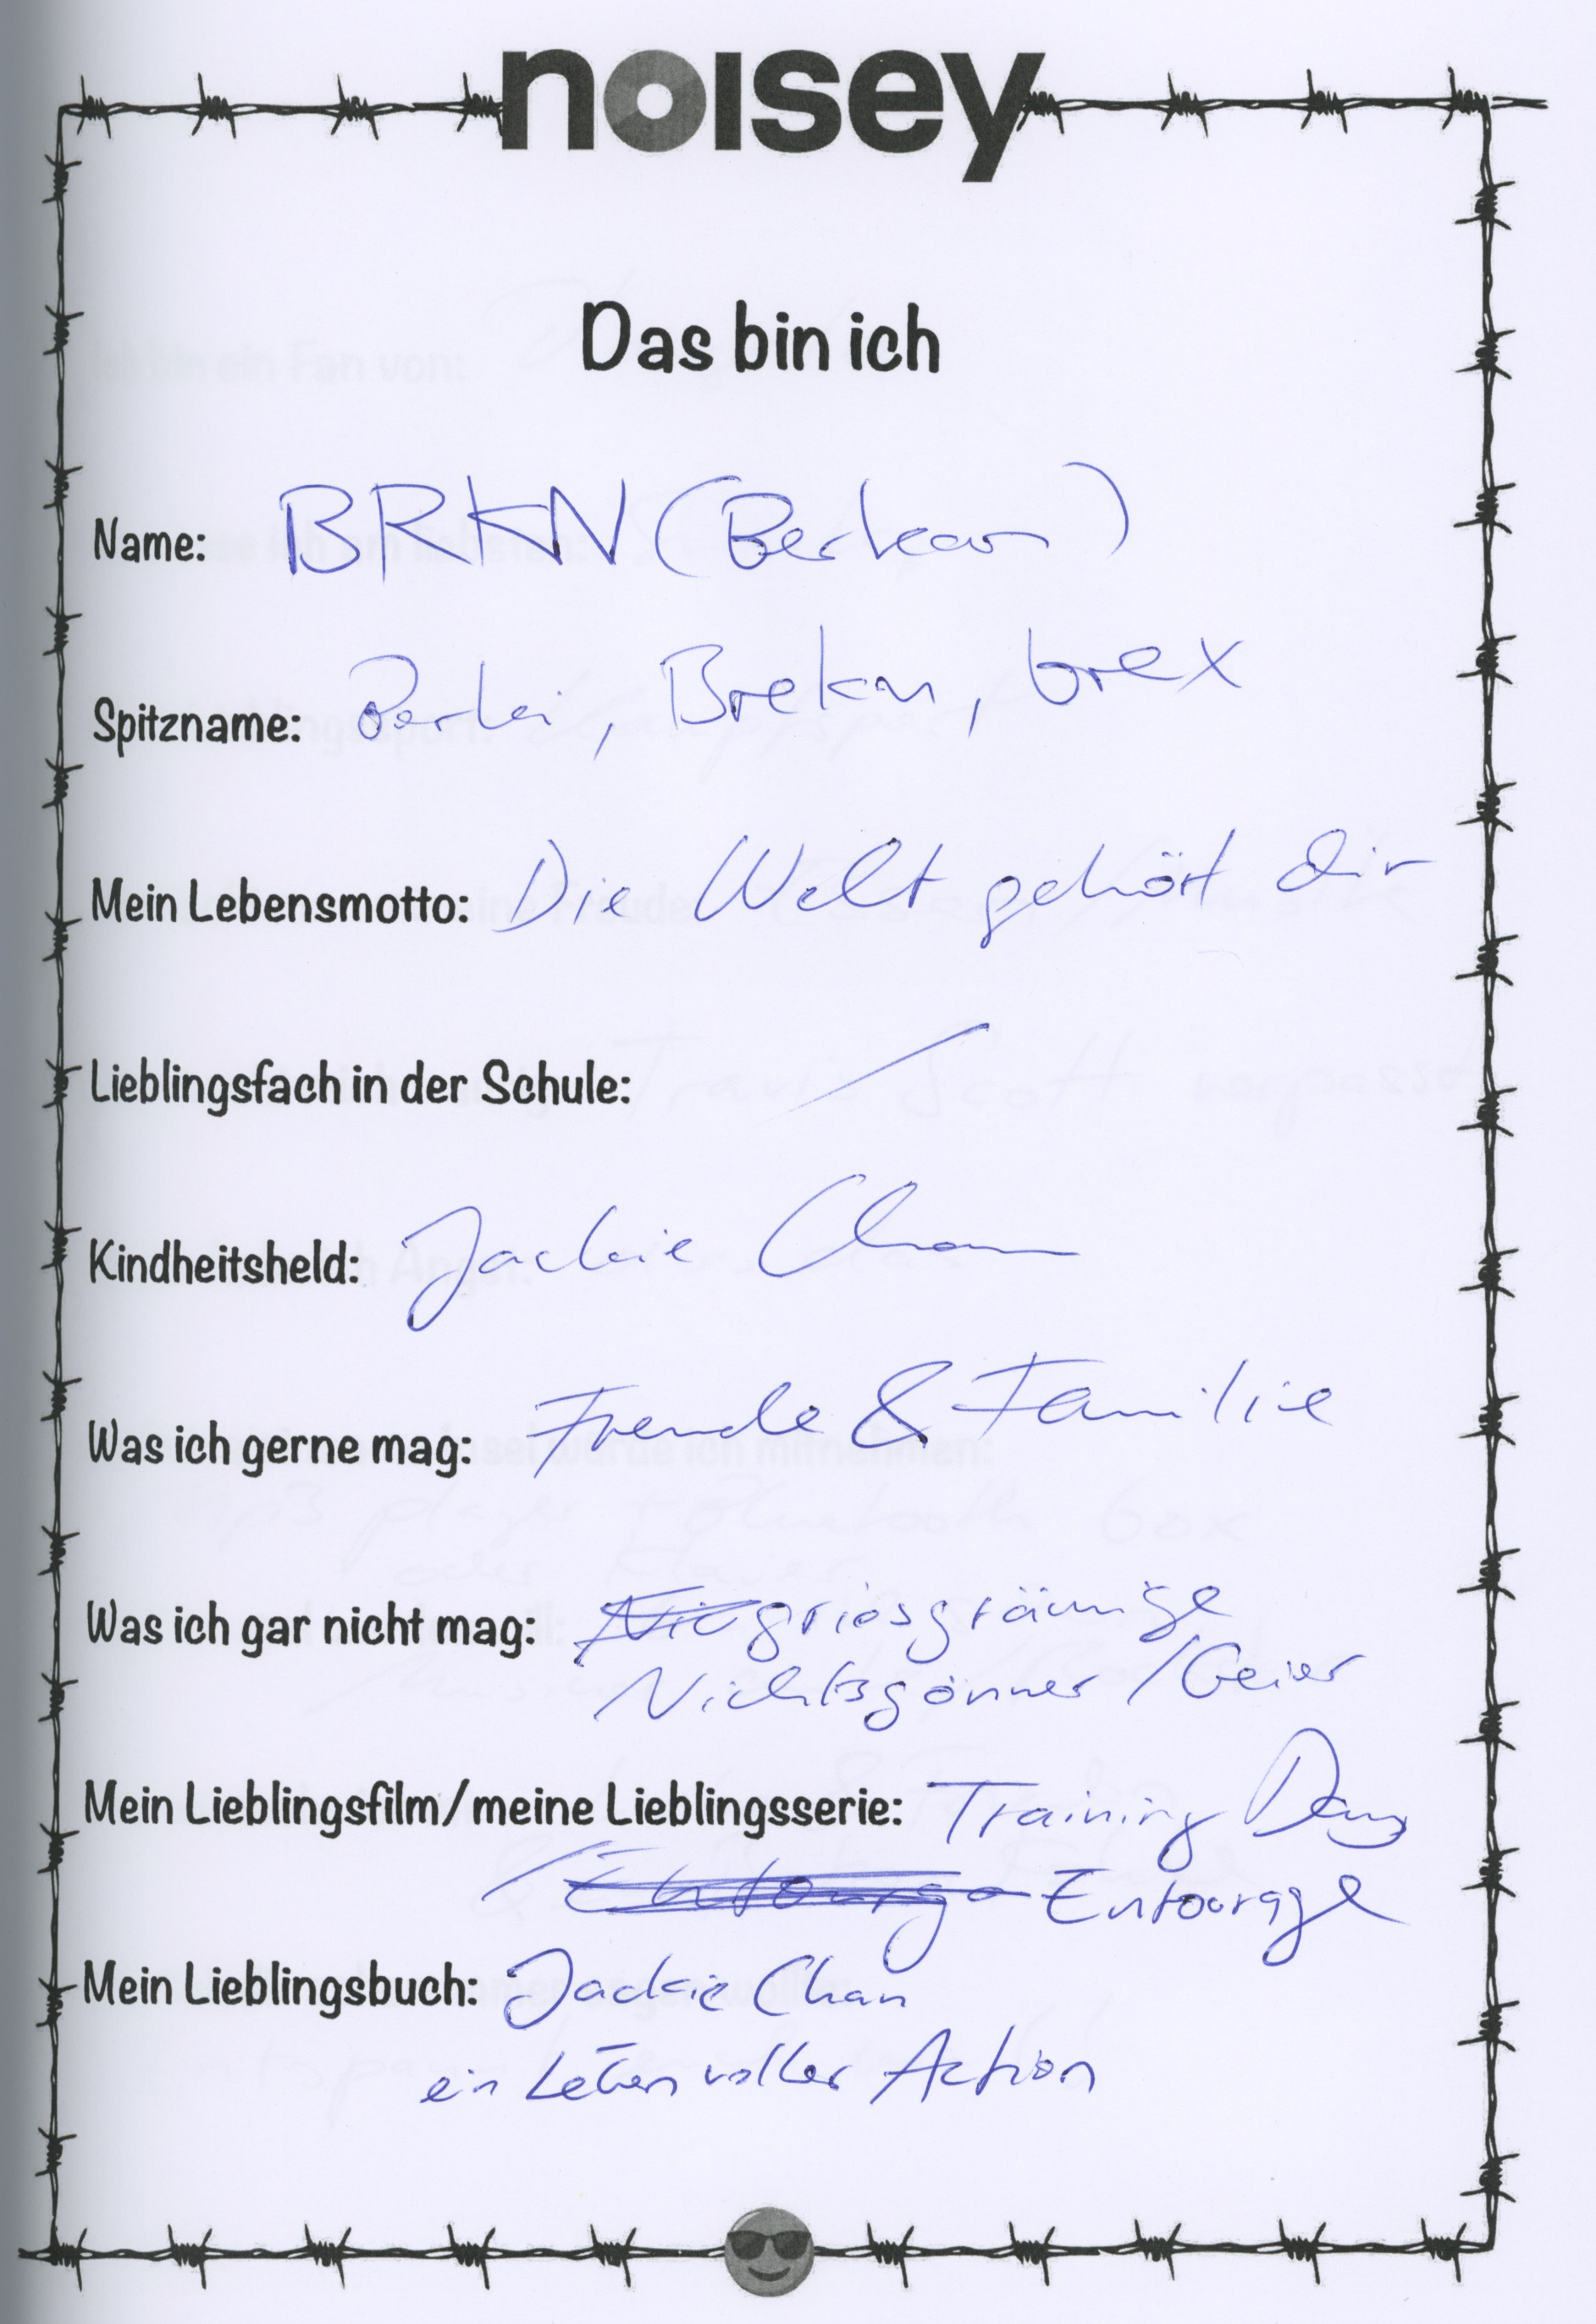 noisey
Das bin ich
Name: BRKN (Berkan)
Spitzname: Berki, Brekan, brex
Mein Lebensmotto: Die Welt gehört dir
Lieblingsfach in der Schule: /
Kindheitsheld: Jackie Chan
Was ich gerne mag: Freunde & Familie
Was ich gar nicht mag: griesgrämige
Nichtsgönner / Geier
Mein Lieblingsfilm/meine Lieblingsserie: Training Day
/ Entourage
Mein Lieblingsbuch: Jackie Chan
ein Leben voller Action